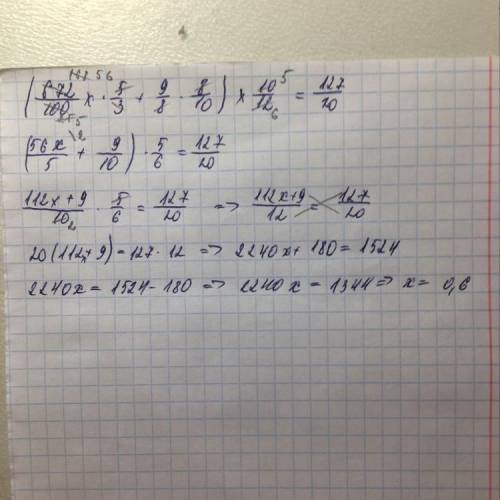 (672/100 x · 5/3 + 9/8 · 8/10) × 10/12 = 127/20
(56x/5 + 9/10) · 5/6 = 127/20
112x + 9/10 · 5/6 = 127/20 => 112x+9/12 = 127/20
20(112x+9) = 127 · 12 => 2240x + 180 = 1524
2240x = 1524 - 180 => 2240x = 1344 => x = 0,6